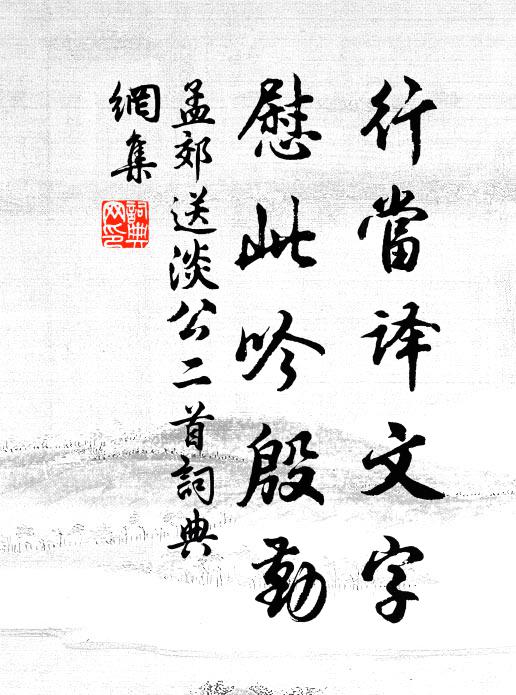 行當译文字
慰此吟殷勤
孟郊送淡公二首詞典
網集
詞典
网印